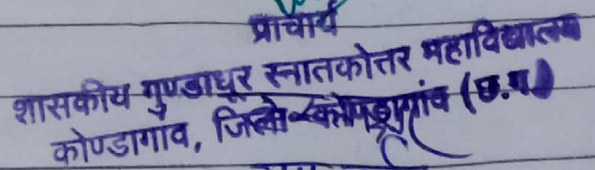 प्राचार्य
शासकीय गुण्डाधूर स्नातकोत्तर महाविद्यालय
कोण्डागांव, जिला-कोण्डागांव (छ.ग.)